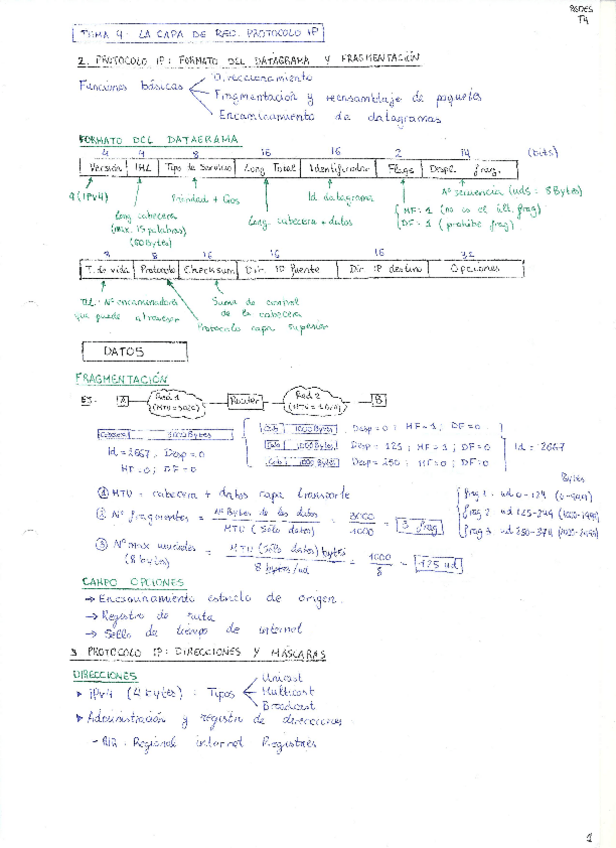 REDES
T4
TEMA 4. LA CAPA DE RED. PROTOCOLO IP
2. PROTOCOLO IP: FORMATO DEL DATAGRAMA Y FRAGMENTACIÓN
Funciones básicas
Direccionamiento
Fragmentación y reensamblaje de paquetes
Encaminamiento de datagramas
FORMATO DEL DATAGRAMA
4 4 8 16 16 2 14 (bits)
Versión IHL Tipo de Servicio Long Total Identificador Flags Despl. frag.
4 (IPv4) Prioridad + Cos Id datagrama Nº secuencia (uds = 8 Bytes)
Long cabecera Long. cabecera + datos MF=1 (no es el últ. frag)
(max. 15 palabras) DF=1 (prohibe frag)
(60 Bytes)
8 8 16 16 16 32
T. de vida Protocolo Checksum Dir. IP fuente Dir IP destino Opciones
Suma de control
que puede atravesar de la cabecera
Protocolo capa superior
DATOS
FRAGMENTACIÓN
EJ. A Red 1 Router Red 2 B
1000 Bytes Desp=0; MF=1; DF=0
3000 Bytes 1000 Bytes Desp=125; MF=1; DF=0 Id=2667
Id=2667, Desp=0 1000 Bytes Desp=250; MF=0; DF=0
MF=0; DF=0
① MTU = cabecera + datos capa transporte
② Nº fragmentos = Nº Bytes de los datos / MTU (Sólo datos) = 3000 / 1000 = 3 frag
Bytes
frag 1 - ud 0-124 (0-999)
frag 2 ud 125-249 (1000-1999)
frag 3 ud 250-374 (2000-2999)
③ Nº max unidades (8 bytes) = MTU (Sólo datos) bytes / 8 bytes/ud = 1000 / 8 = 125 ud
CAMPO OPCIONES
→ Encaminamiento estricto de origen.
→ Registro de ruta
→ Sello de tiempo de internet
3 PROTOCOLO IP: DIRECCIONES Y MÁSCARAS
DIRECCIONES
IPv4 (4 bytes): Tipos
Unicast
Multicast
Broadcast
Administración y registro de direcciones
- RIR. Regional Internet Registries
1